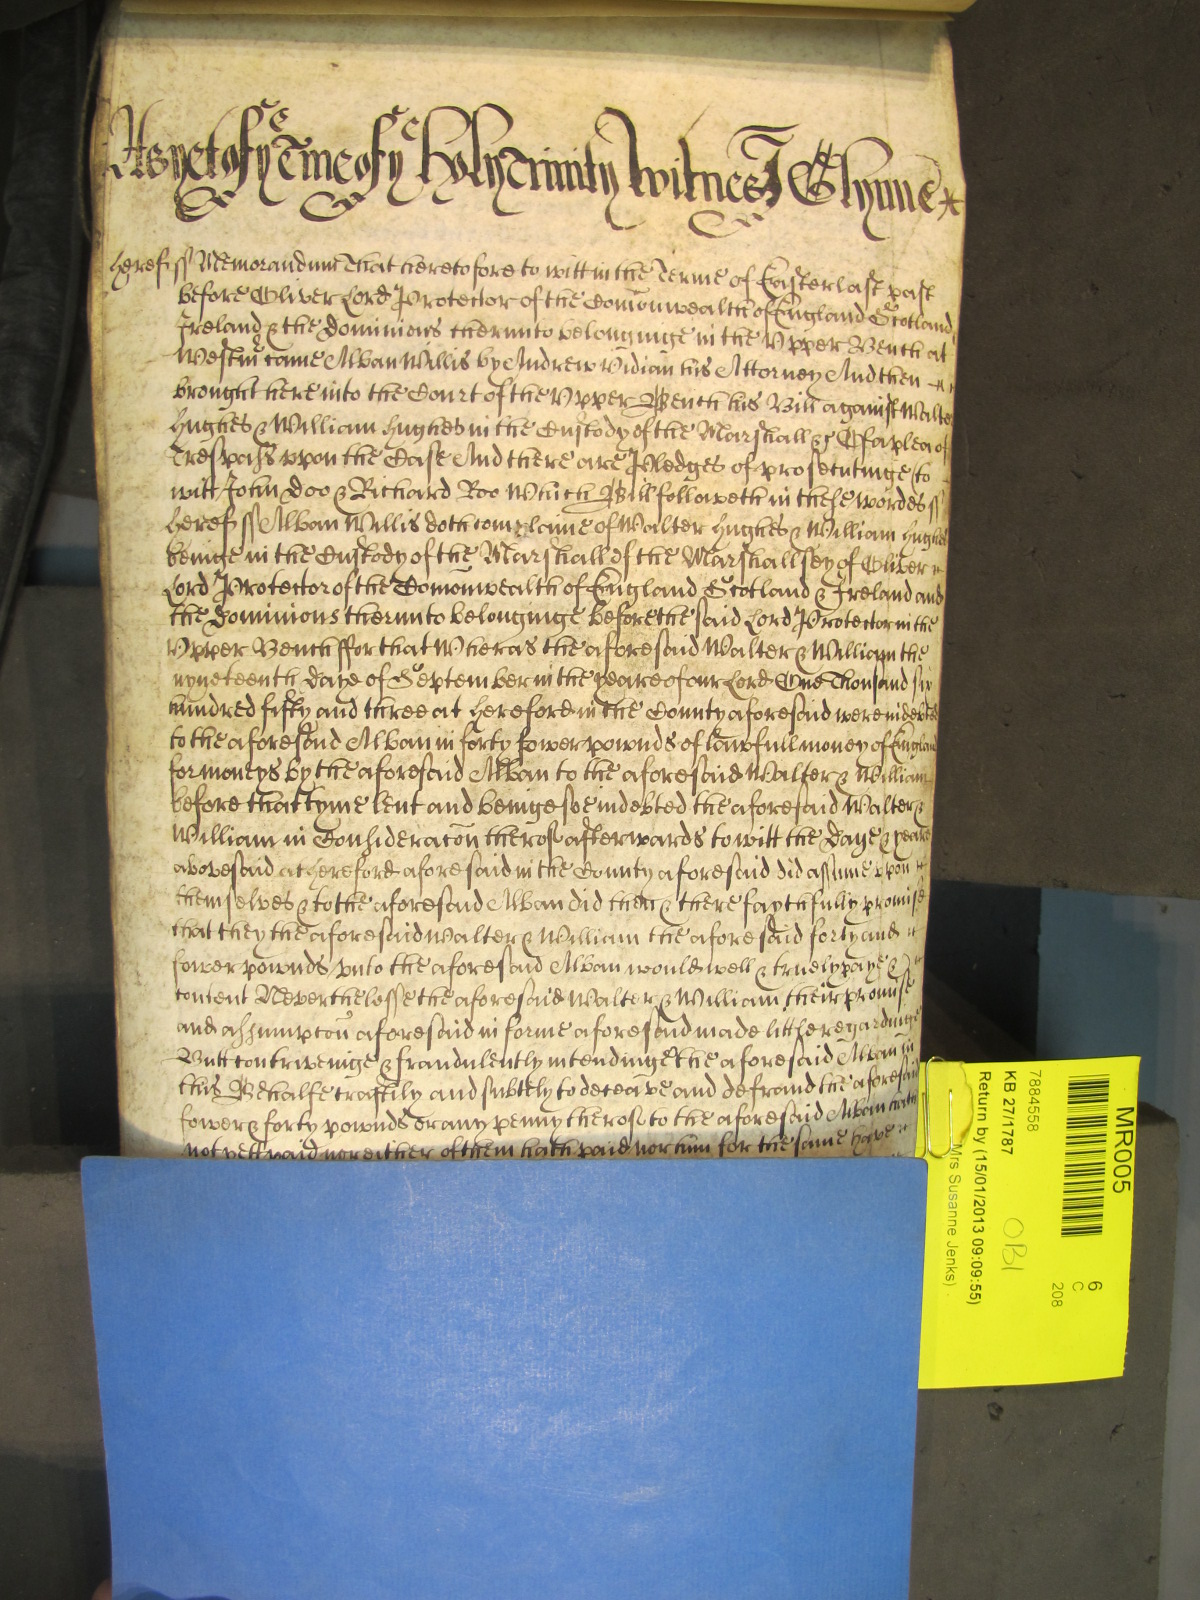 As yet of ye Tme of ye Holy Trinity Witnes J Glynne
Heref ss Memorandum That heretofore to witt in the Terme of Easter last past
before Oliver Lord Protector of the Comonwealth of England Scotland
Ireland & the Dominions therunto belonginge in the Upper Bench at
Westmr came Alban Willis by Andrew Vidian his Attorney And then
brought here into the Court of the Upper Bench his Bill against Walter
Hughes & William Hughes in the Custody of the Marshall &c Of a plea of
Trespasse uppon the Case And there are Pledges of prosecutinge to
witt John Doo & Richard Roo Which Bill followeth in these wordes ss
Heref ss Alban Willis doth complaine of Walter Hughes & William Hughes
beinge in the Custody of the Marshall of the Marshallsey of Oliver
Lord Protector of the Comonwealth of England Scotland & Ireland and
the Dominions therunto belonginge before the said Lord Protector in the
Upper Bench ffor that Wheras the aforesaid Walter & William the
nyneteenth Daye of September in the yeare of our Lord One Thousand six
hundred fifty and three at Hereford in the County aforesaid were indebted
to the aforesaid Alban in forty fower pownds of lawfull money of England
for moneys by the aforesaid Alban to the aforesaid Walter & William
before that tyme lent and beinge soe indebted the aforesaid Walter &
William in Consideracon therof afterwards to witt the Daye & yeare
abovesaid at Hereford aforesaid in the County aforesaid did assume upon
themselves & to the aforesaid Alban did then & there faythfully promise
that they the aforesaid Walter & William the aforesaid forty and
fower pownds unto the aforesaid Alban would well & truely paye &
content Neverthelesse the aforesaid Walter & William their promise
and assumpcon aforesaid in forme aforesaid made little regardinge
Butt contriveinge & fraudulently intendinge the aforesaid Alban in
this Behalfe craftily and subtely to deceave and defraud the aforesaid
fower & forty pownds or any penny therof to the aforesaid Alban
not yett paid nor either of them hath paid nor him for the same have
MR005
6
C
208
7884558
KB 27/1787
OBI
Return by (15/01/2013 09:09:55)
Mrs Susanne Jenks)